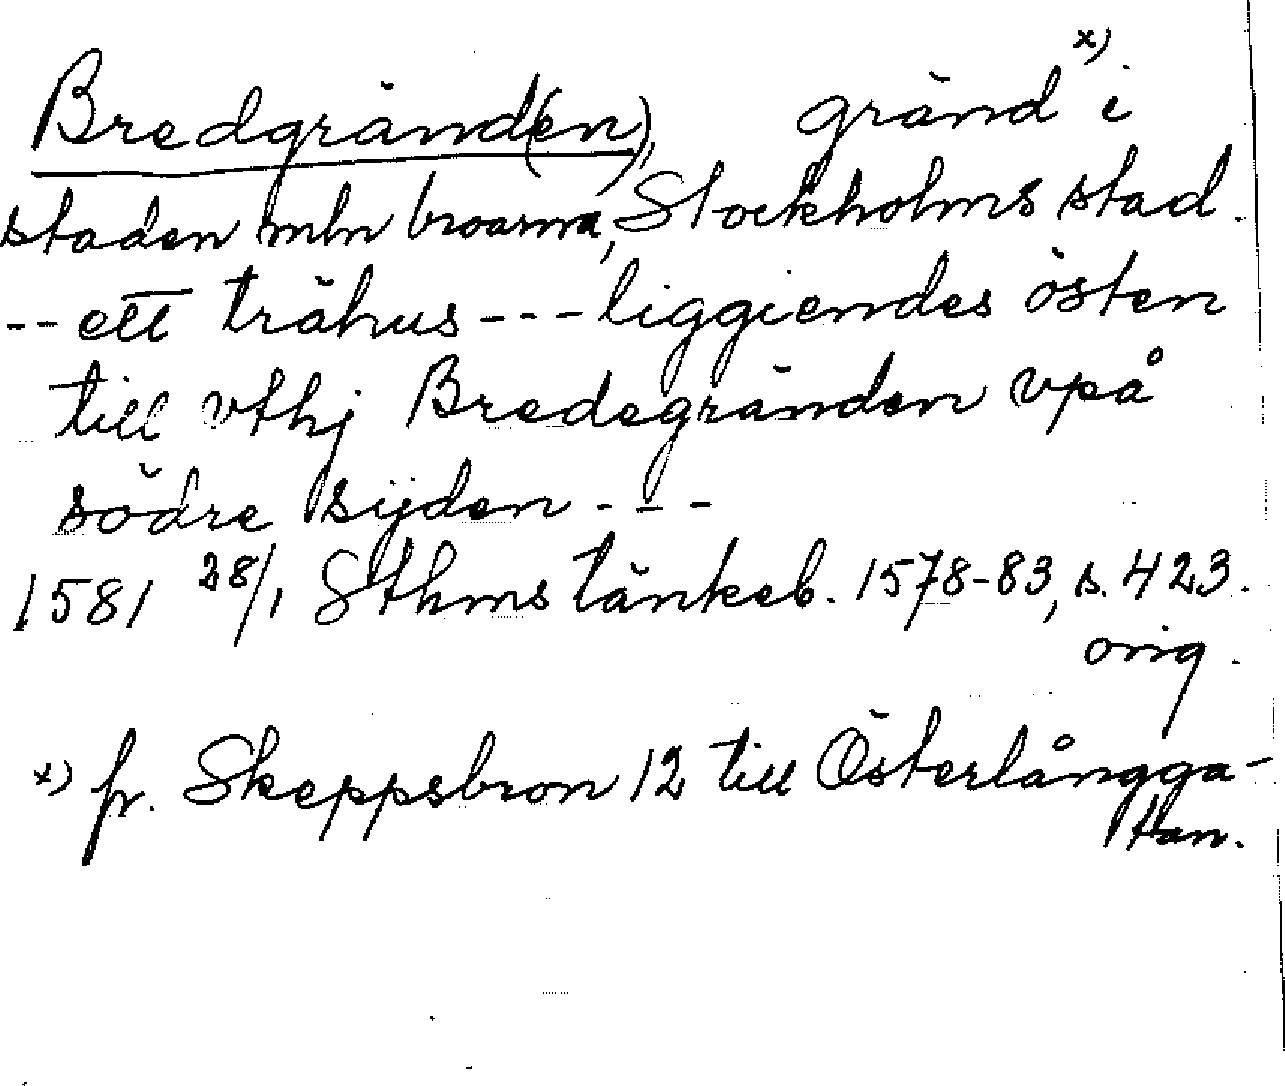 Bredgränd(en), gränd x) i
staden mln broarna, Stockholms stad.
-- ett trähus --- liggiendes östen
till vthj Bredegränden vpå
södre sijden - - -
1581 28/1 Sthms tänkeb. 1578-83, s. 423.
orig.
x) fr. Skeppsbron 12 till Österlångga-
tan.